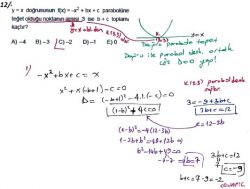 12/.
y = x doğrusunun f(x) = -x² + bx + c parabolüne
teğet olduğu noktanın apsisi 3 ise b + c toplamı
kaçtır?
A) -4 B) -3 C) -2 D) -1 E) 0
Doğru parabole teğet
Doğru ile parabol denk, ortak
çöz D=0 yap!
-x²+bx+c = x
x²+x(-b+1)-c=0
D=(-b+1)²-4.1.(-c)=0
(1-b)²+4c=0
K(3,3) parabol denk
3=-9+3b+c
3b+c=12
c=12-3b
(1-b)²=-4(12-3b)
b²-14b+49=0
b=7
3b+c=12
c=-9
b+c=7-9=-2